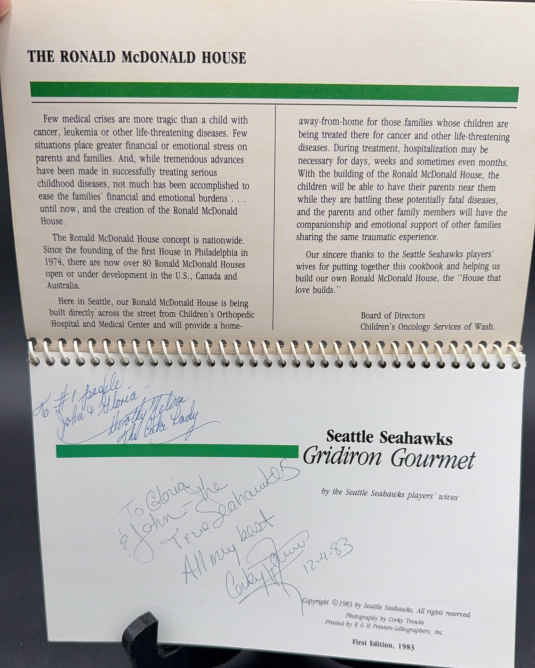 THE RONALD McDONALD HOUSE
Few medical crises are more tragic than a child with
cancer, leukemia or other life-threatening diseases. Few
situations place greater financial or emotional stress on
parents and families. And, while tremendous advances
have been made in successfully treating serious
childhood diseases, not much has been accomplished to
ease the families' financial and emotional burdens . . .
until now, and the creation of the Ronald McDonald
House.
The Ronald McDonald House concept is nationwide.
Since the founding of the first House in Philadelphia in
1974, there are now over 80 Ronald McDonald Houses
open or under development in the U.S., Canada and
Australia.
Here in Seattle, our Ronald McDonald House is being
built directly across the street from Children's Orthopedic
Hospital and Medical Center and will provide a home-
away-from-home for those families whose children are
being treated there for cancer and other life-threatening
diseases. During treatment, hospitalization may be
necessary for days, weeks and sometimes even months.
With the building of the Ronald McDonald House, the
children will be able to have their parents near them
while they are battling these potentially fatal diseases,
and the parents and other family members will have the
companionship and emotional support of other families
sharing the same traumatic experience.
Our sincere thanks to the Seattle Seahawks players'
wives for putting together this cookbook and helping us
build our own Ronald McDonald House, the "House that
love builds."
Board of Directors
Children's Oncology Services of Wash.
To #1 people
John & Gloria
Dorothy
The Cake Lady
Seattle Seahawks
Gridiron Gourmet
by the Seattle Seahawks players' wives
To Gloria
& John - The
True Seahawks
All my best
Corky
12-4-83
Copyright © 1983 by Seattle Seahawks, All rights reserved.
Photography by Corky Trewin
Printed by R & H Printers-Lithographers, Inc.
First Edition, 1983